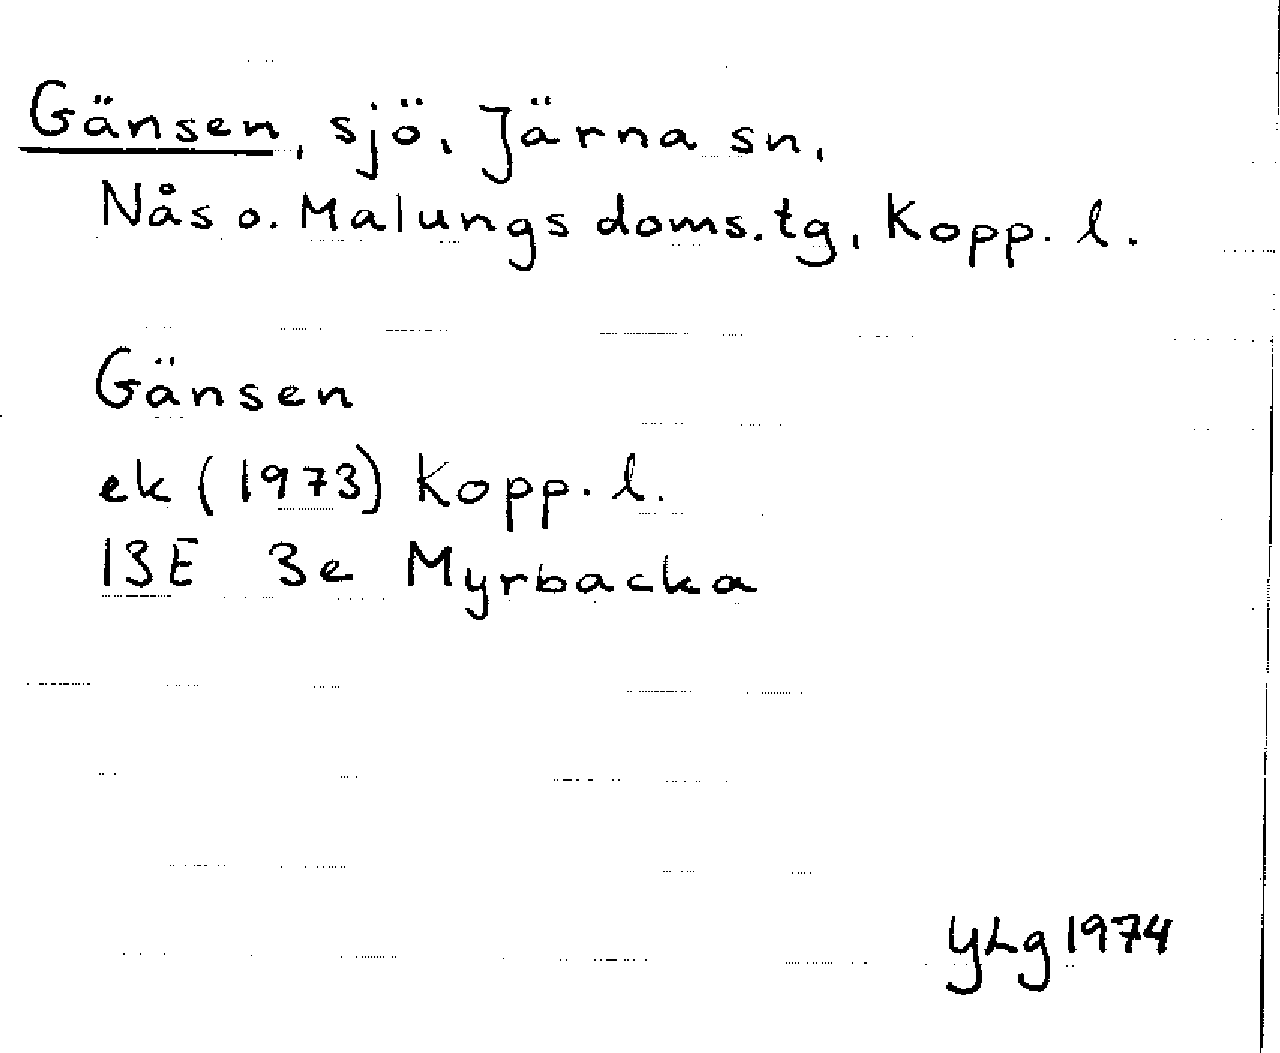 Gänsen, sjö, Järna sn,
Nås o. Malungs doms.tg, Kopp. l.
Gänsen
ek (1973) Kopp. l.
13E 3e Myrbacka
YLg 1974